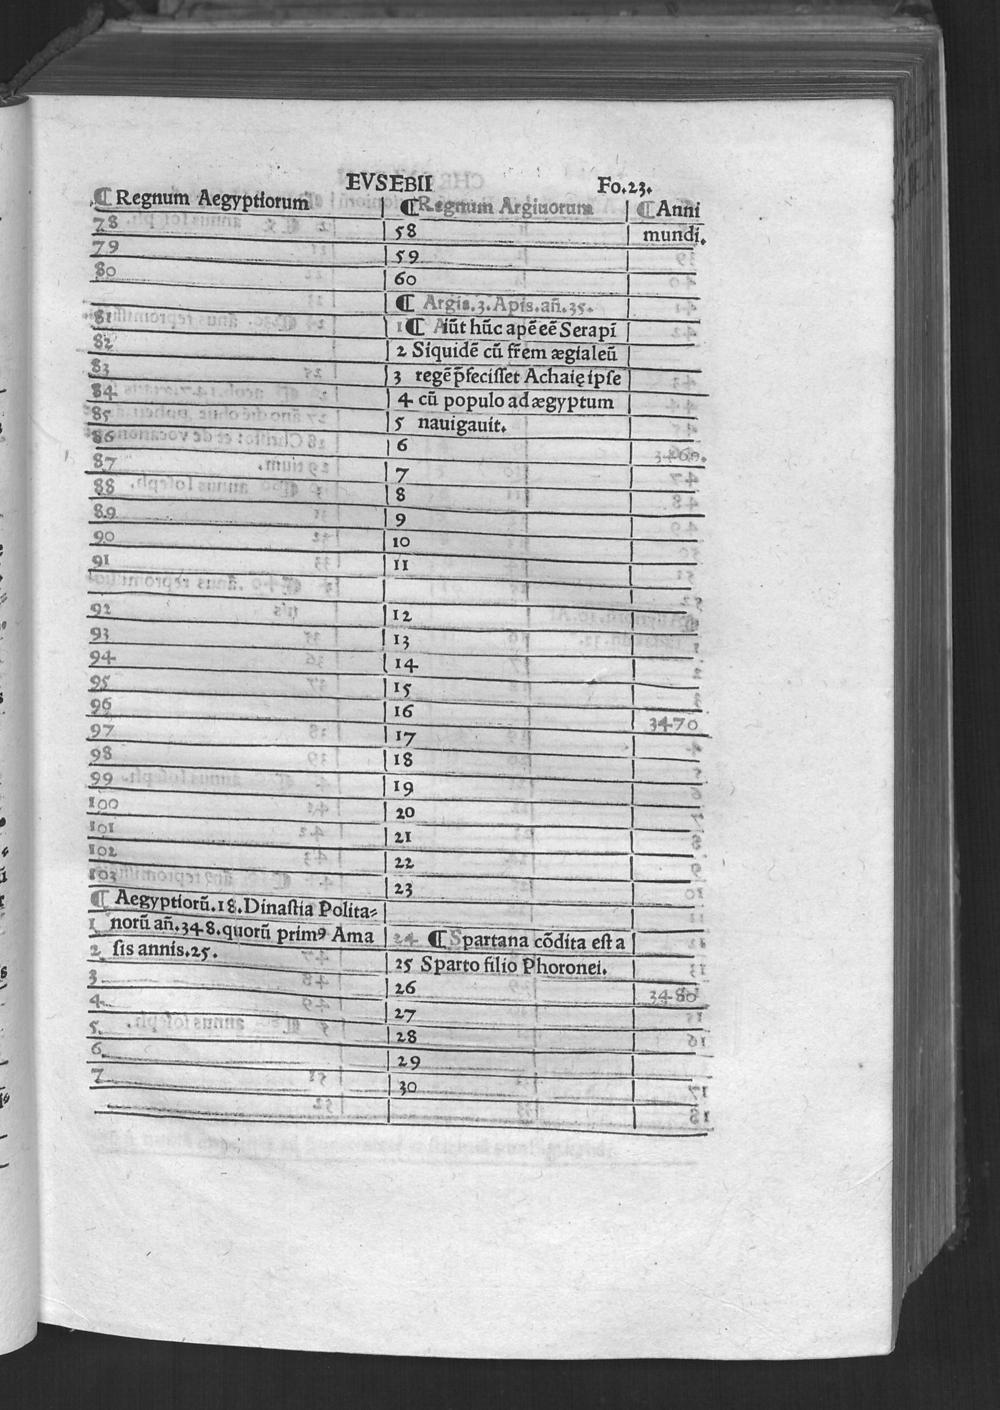 EVSEBII Fo.23.
¶ Regnum Aegyptiorum ¶ Regnum Argiuorum ¶ Anni
78 58 mundi.
79 59
80 60
¶ Argis.3.Apis.añ.35.
81 1 ¶ Aiũt hũc apẽ eẽ Serapĩ
82 2 Siquidẽ cũ fr̃em ægialeũ
83 3 regẽ p̃fecisset Achaię ipse
84 4 cũ populo ad ægyptum
85 5 nauigauit.
86 6 3460.
87 7
88 8
89 9
90 10
91 11
92 12
93 13
94 14
95 15
96 16 3470
97 17
98 18
99 19
100 20
101 21
102 22
103 23
¶ Aegyptiorũ.18.Dinastia Polita=
1 norũ añ.348.quorũ primꝰ Ama 24 ¶ Spartana cõdita est a
2 sis annis.25. 25 Sparto filio Phoronei.
3 26 3480
4 27
5 28
6 29
7 30